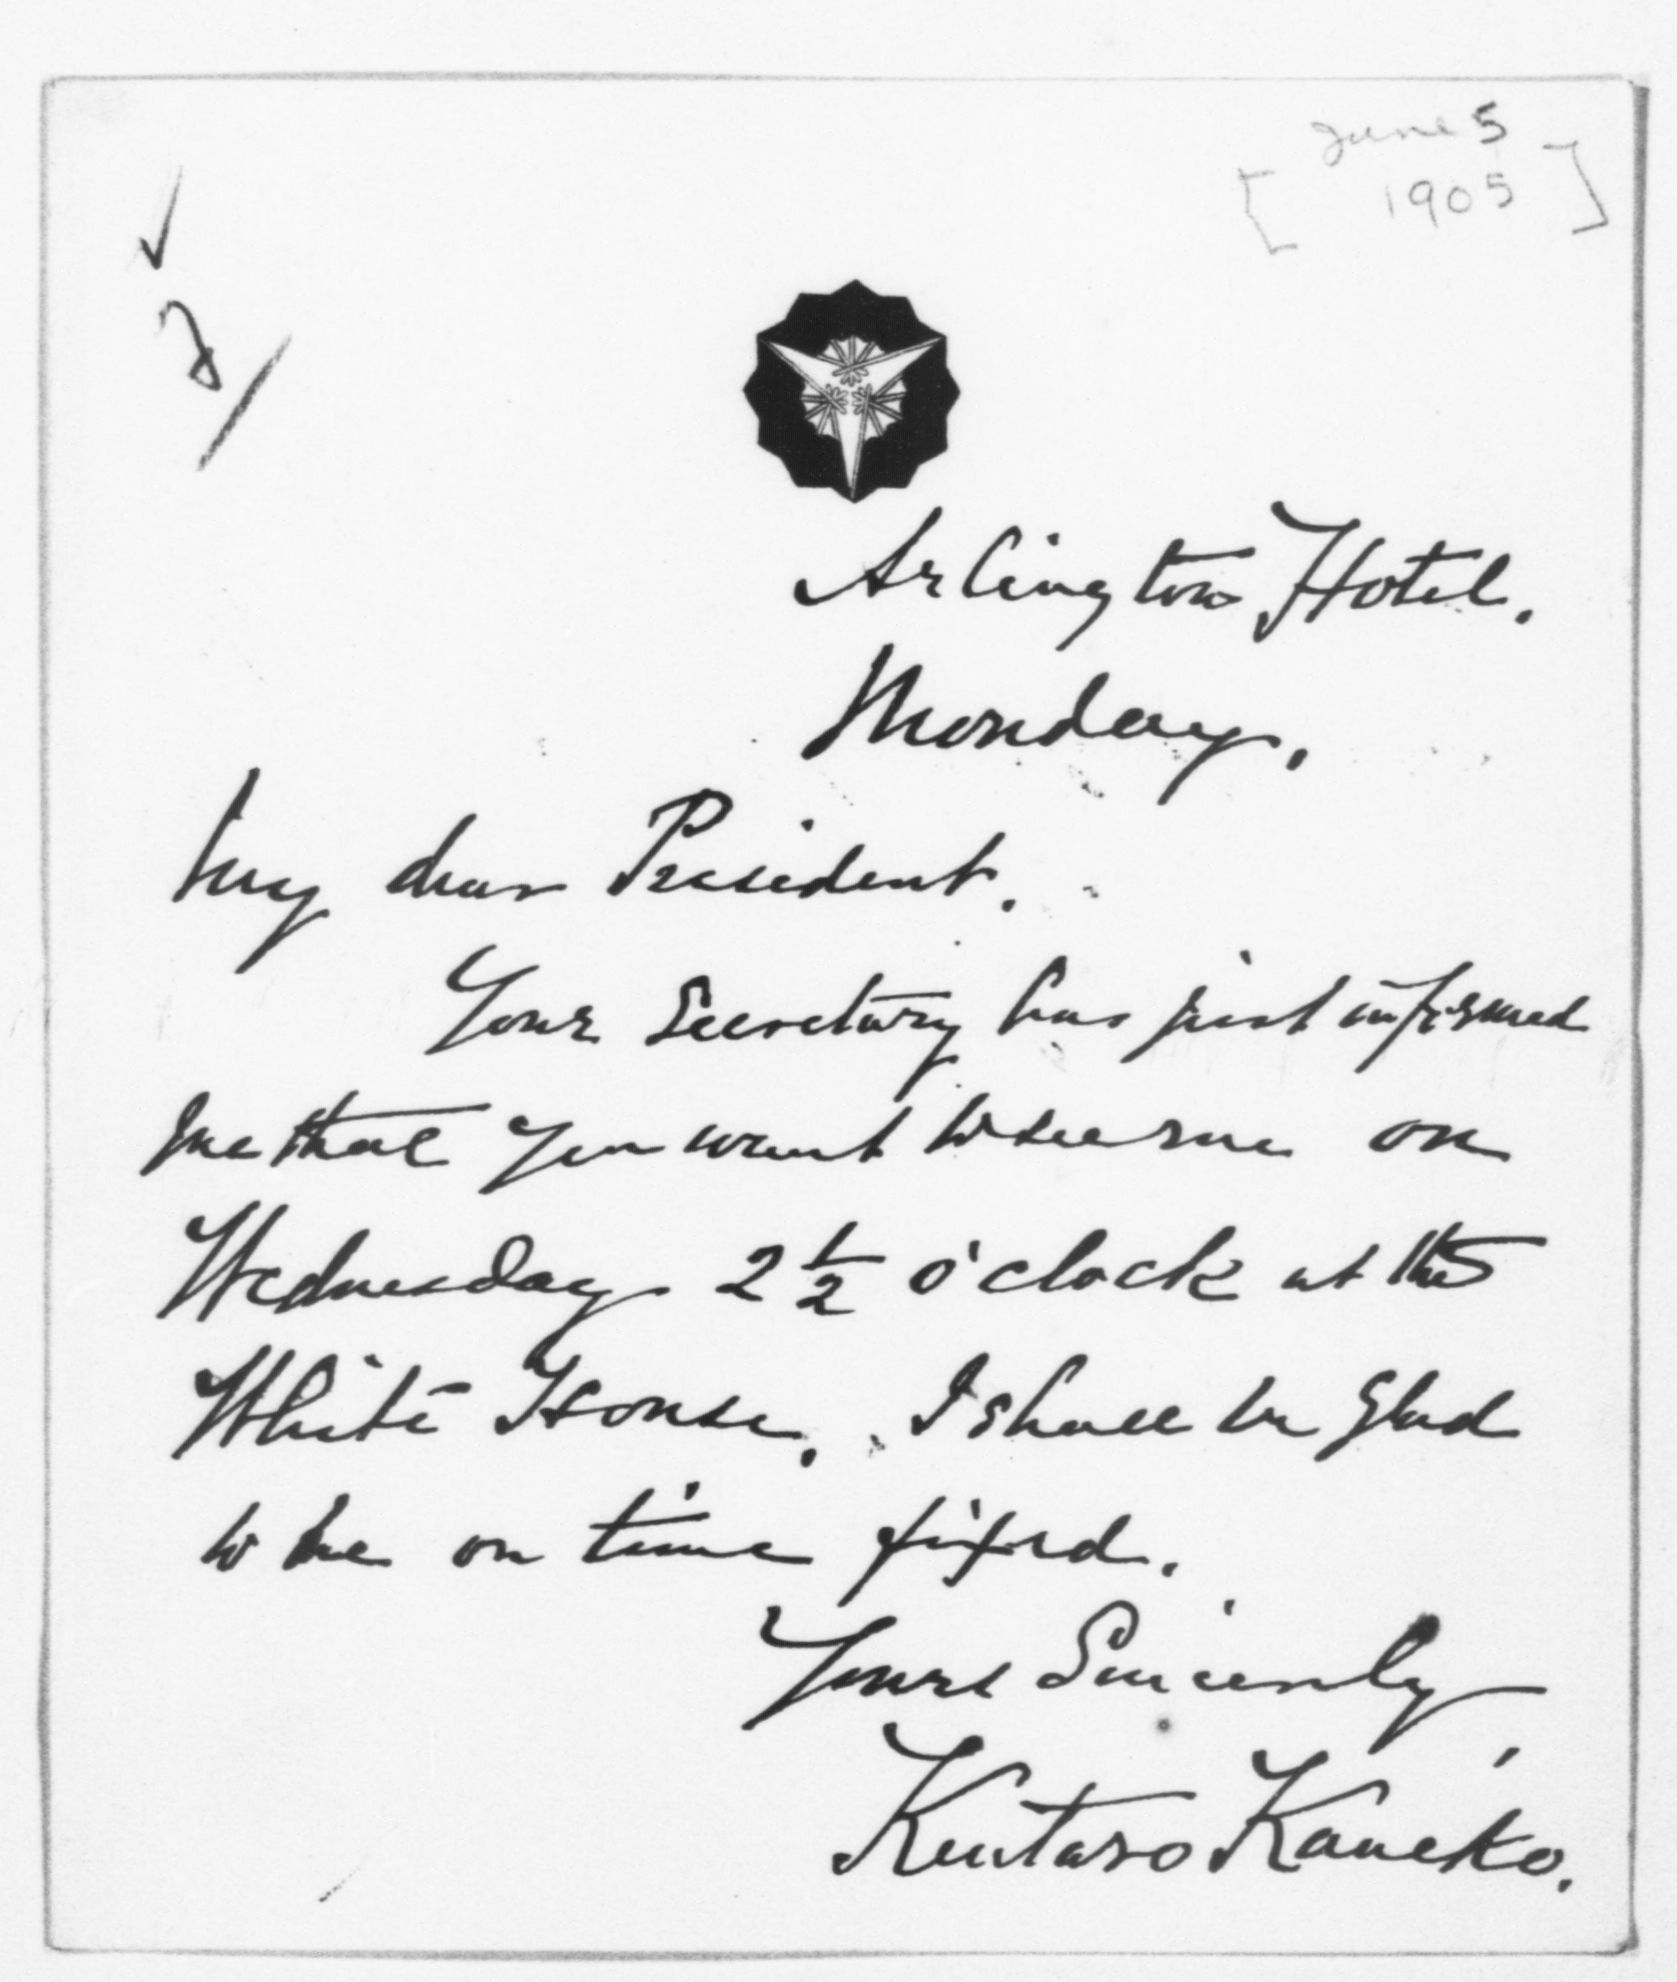 June 5
[1905]
Arlington Hotel.
Monday.
My dear President.
Your Secretary has just informed
me that you want to see me on
Wednesday 2 1/2 o'clock at the
White House. I shall be glad
to be on time fixed.
Yours Sincerely,
Kentaro Kaneko.